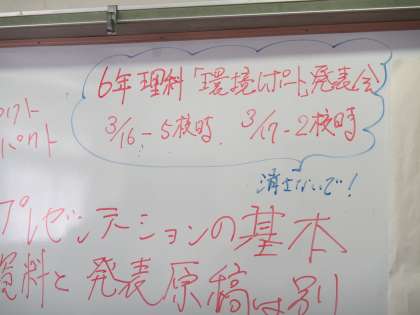 6年理科「環境レポート発表会」
3/16-5校時. 3/17-2校時
消さないで!
プレゼンテーションの基本
資料と発表原稿は別